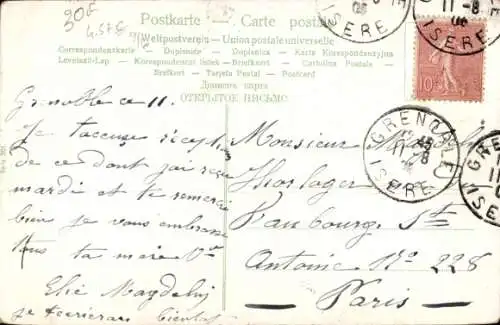 30f
Postkarte — Carte postale
Weltpostverein — Union postale universelle
Correspondenzkarte — Dopisnice — Dopisnica — Karta Korespondencyjna
Levelező-Lap — Korespondenční lístek — Briefkaart — Cartolina Postale
Brefkort — Tarjeta Postal — Postcard
Дописна карта
ОТКРЫТОЕ ПИСЬМО
Grenoble ce 11.
Je t'accuse
de ce dont j'ai reçu
mardi et te remercie
bien je vous embrasse
tous ta mère
Elie
je t'écrirai bientôt
Monsieur
Horloger
Faubourg St
Antoine No 228
Paris
10
GRENOBLE
11 - 8
ISERE
11 - 8
06
ISERE
ISERE
GRE
11
ISERE